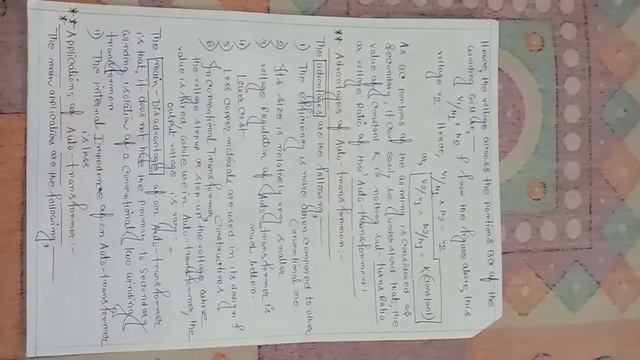 Hence, the voltage across the portions BC of the
winding will be,
V1/N1 × N2 & from the figure above, this
voltage V2. Hence, V1/N1 × N2 = V2
or, V2/V1 = N2/N1 = K (Constant)
As BC portions of the winding is considered as
Secondary, it can easily be understand that, the
value of Constant K is nothing but turns Ratio
or voltage Ratio of the Auto-transformer.
** Advantages of Auto-transformer:-
The advantages are the following,
1) The efficiency is more when compared to other
Conventional one
2) Its size is relatively very smaller
3) voltage Regulation of Auto transformer is
much better.
4) Lower Cost.
5) Less copper materials are used in its design &
Constructions
6) In conventional transformer,
the voltage step up or step-down the voltage
value is fixed while use in Auto transformer, the
output voltage is vary.
The main-Disadvantage of an Auto-transformer
is that, it does not have the primary to Secondary
winding isolation of a Conventional two winding
transformer
11) The internal Impedence of an Auto-transformer
is less.
** Applications of Auto-transformer:-
The main application are the following,